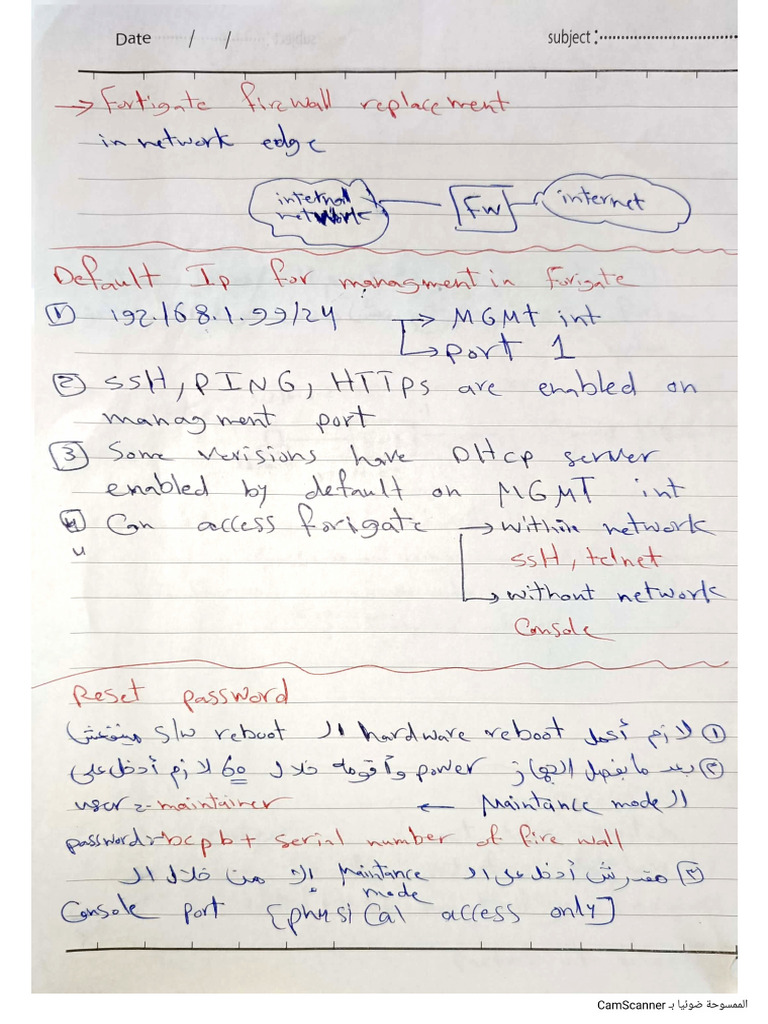 Date / /
subject :
→ Fortigate firewall replacement
in network edge
internal network
FW
internet
Default Ip for managment in Forigate
① 192.168.1.99/24 → MGMt int
→ port 1
② SSH, PING, HTTPs are enabled on
managment port
③ Some verisions have DHcp server
enabled by default on MGMT int
④ Can access forigate → within network
SSH, telnet
→ without network
Console
Reset password
① لازم أعمل hardware reboot الـ s/w reboot مينفعش
② بعد مابفصل الجهاز power وأقومه خلال 60 لازم أدخل على
الـ Maintance mode ← user :- maintainer
password :- bcpb + serial number of fire wall
③ مقدرش أدخل على الـ Maintance mode إلا من خلال الـ
Console port [physical access only]
الممسوحة ضوئيا بـ CamScanner